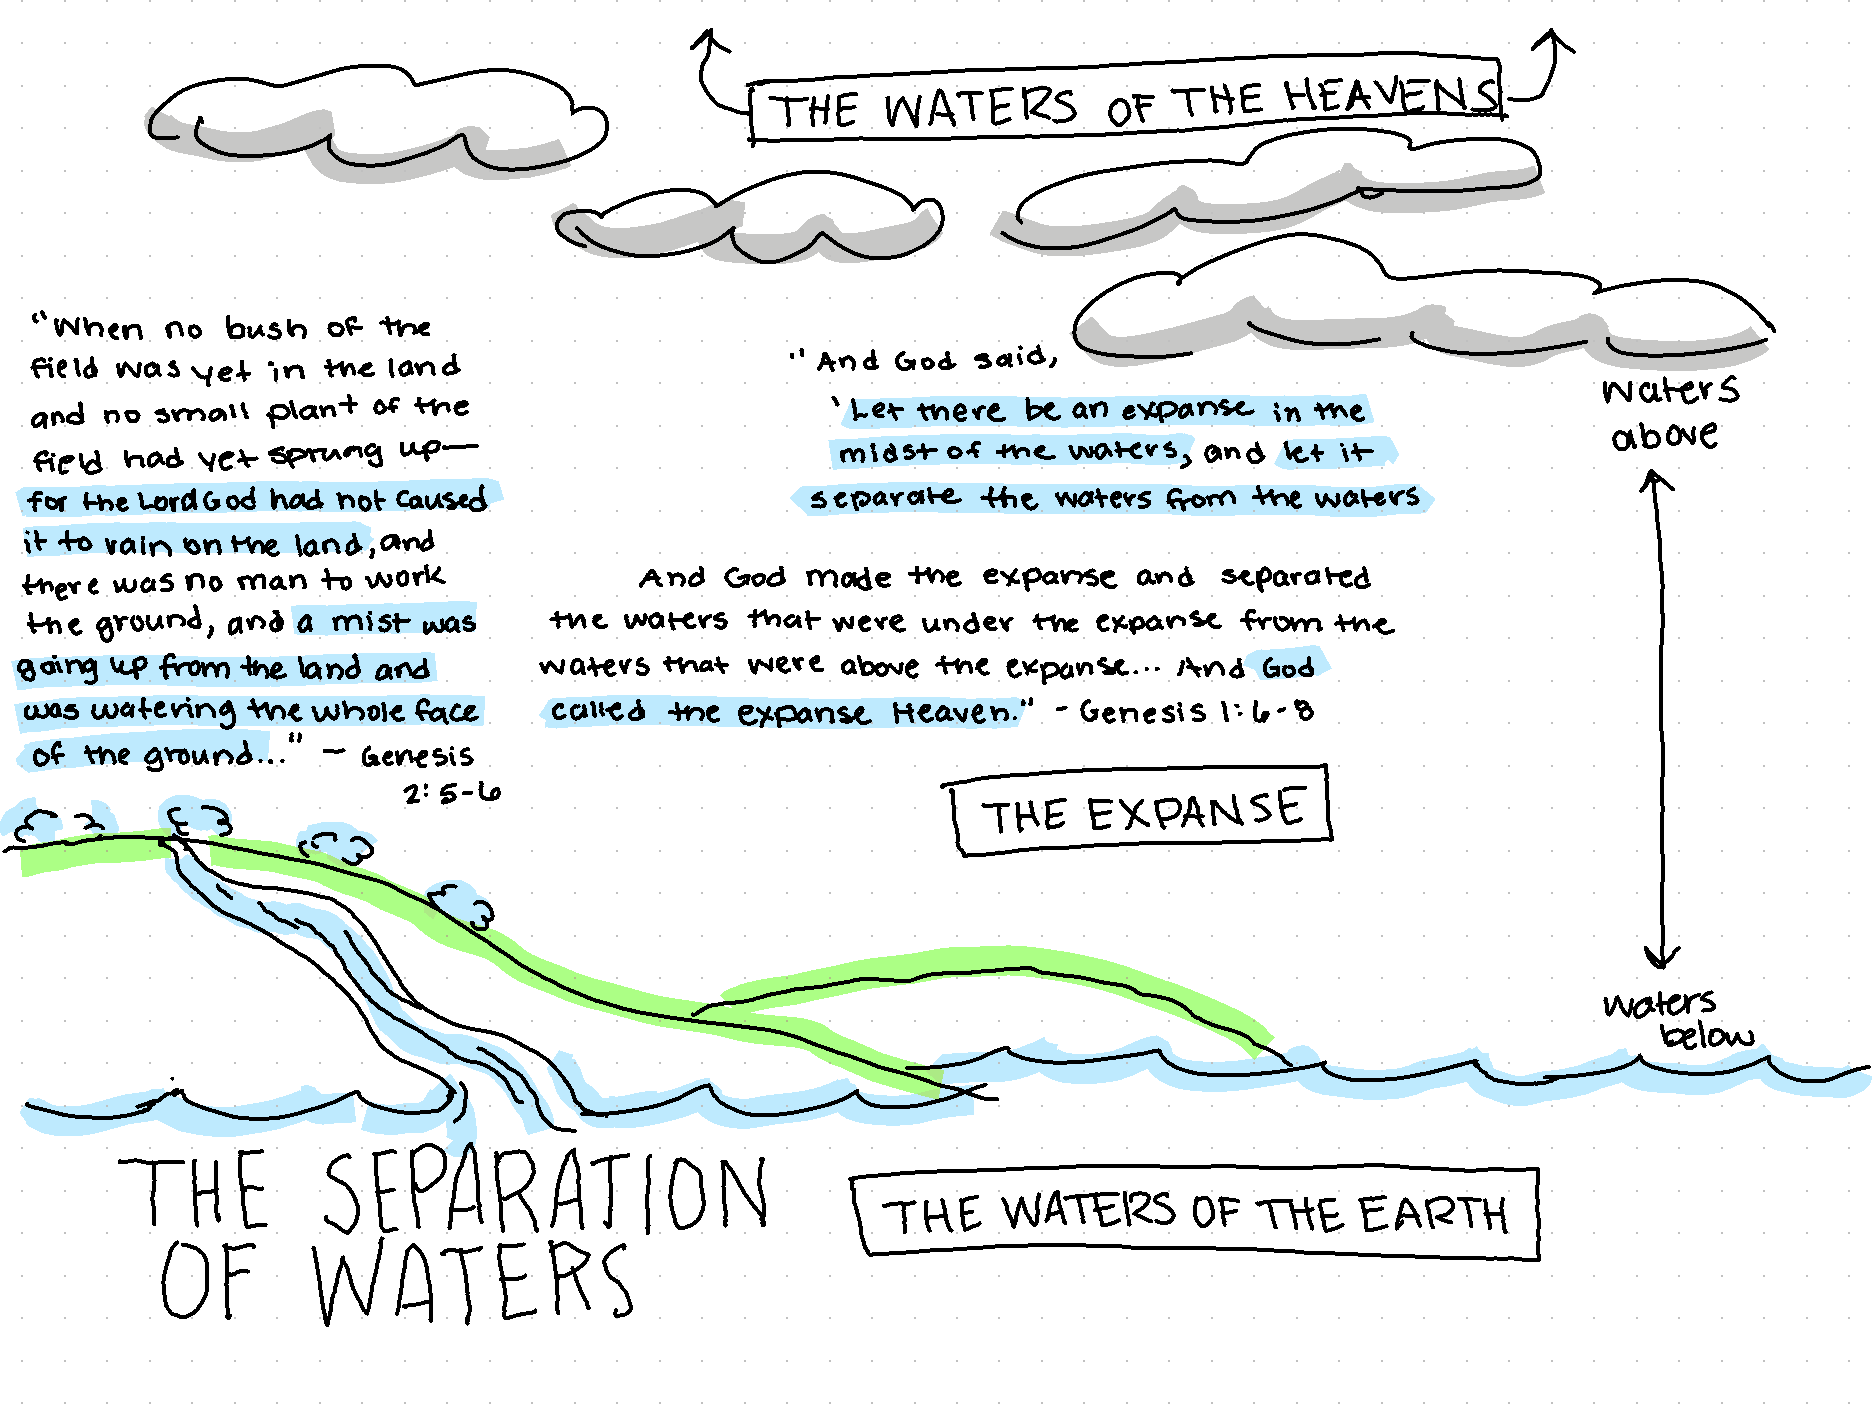 THE WATERS OF THE HEAVENS
"When no bush of the
field was yet in the land
and no small plant of the
field had yet sprung up—
for the Lord God had not caused
it to rain on the land, and
there was no man to work
the ground, and a mist was
going up from the land and
was watering the whole face
of the ground..." — Genesis
2:5-6
"And God said,
'Let there be an expanse in the
midst of the waters, and let it
separate the waters from the waters
And God made the expanse and separated
the waters that were under the expanse from the
waters that were above the expanse... And God
called the expanse Heaven." - Genesis 1:6-8
waters
above
THE EXPANSE
waters
below
THE SEPARATION
OF WATERS
THE WATERS OF THE EARTH